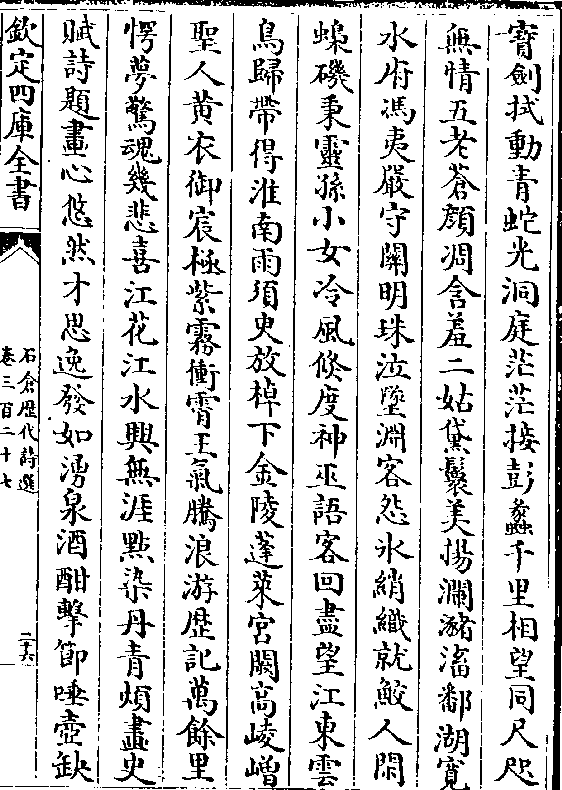 寳劍拭動青蛇光洞庭茫茫接彭蠡千里相望同尺咫
無情五老蒼顔凋含羞二姑黛鬟美揚瀾瀦滀鄱湖寛
水府馮夷嚴守關明珠泣墜淵客怨氷綃織就鮫人閑
蟂磯秉靈孫小女冷風倐度神巫語客回盡望江東雲
鳥歸帶得淮南雨須臾放棹下金陵蓬萊宮闕高崚嶒
聖人黄衣御宸極紫霧衝霄王氣騰浪游歴記萬餘里
愕夢驚魂幾悲喜江花江水興無涯點染丹青煩畫史
賦詩題畫心悠然才思逸發如湧泉酒酣擊節唾壺缺
欽定四庫全書
石倉歴代詩選
卷三百二十七
二十六